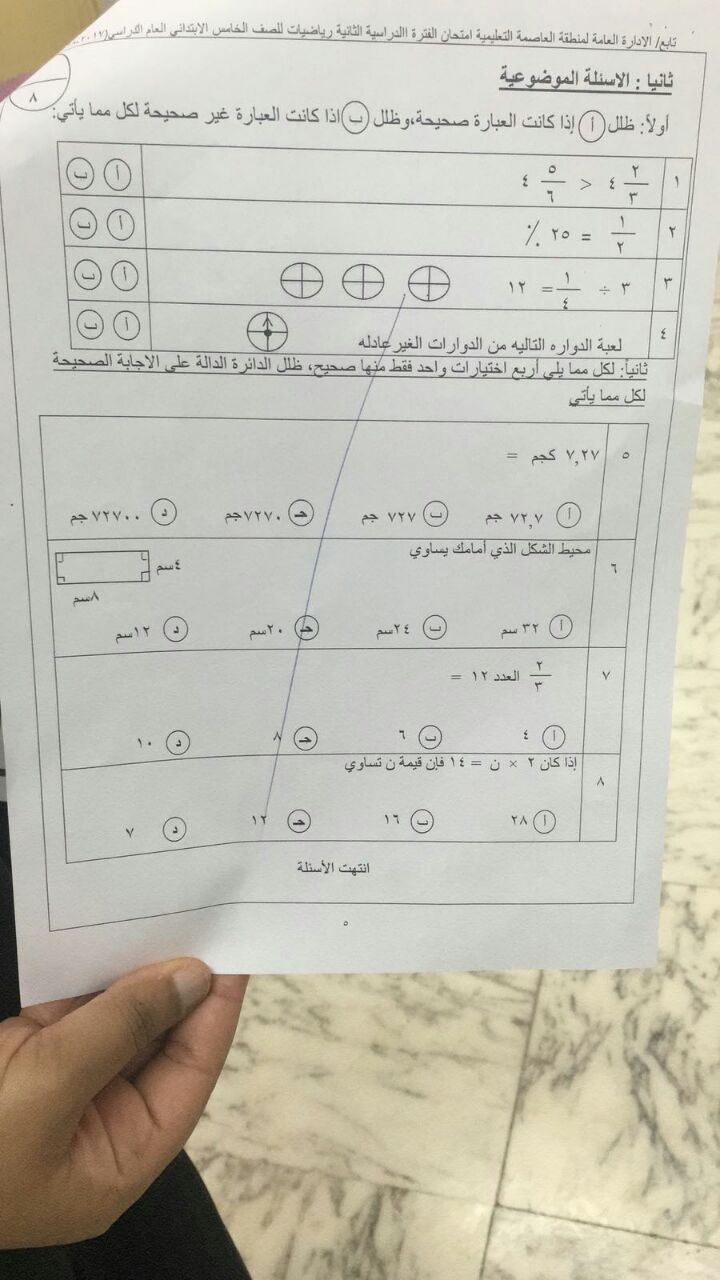 تابع/ الادارة العامة لمنطقة العاصمة التعليمية امتحان الفترة االدراسية الثانية رياضيات للصف الخامس الابتدائي العام الدراسي
٨
ثانيا : الاسئلة الموضوعية
أولاً: ظلل أ إذا كانت العبارة صحيحة،وظلل ب اذا كانت العبارة غير صحيحة لكل مما يأتي:
١ ٤ ٢/٣ > ٤ ٥/٦ أ ب
٢ ١/٢ = ٢٥ ٪ أ ب
٣ ٣ ÷ ١/٤ = ١٢ أ ب
٤ لعبة الدواره التاليه من الدوارات الغير عادله أ ب
ثانياً: لكل مما يلي أربع اختيارات واحد فقط منها صحيح، ظلل الدائرة الدالة على الاجابة الصحيحة
لكل مما يأتي
٥ ٧,٢٧ كجم =
أ ٧٢,٧ جم ب ٧٢٧ جم جـ ٧٢٧٠جم د ٧٢٧٠٠جم
٦ محيط الشكل الذي أمامك يساوي
٤سم
٨سم
أ ٣٢ سم ب ٢٤سم جـ ٢٠سم د ١٢سم
٧ ٢/٣ العدد ١٢ =
أ ٤ ب ٦ جـ ٨ د ١٠
٨ إذا كان ٢ × ن = ١٤ فإن قيمة ن تساوي
أ ٢٨ ب ١٦ جـ ١٢ د ٧
انتهت الأسئلة
٥